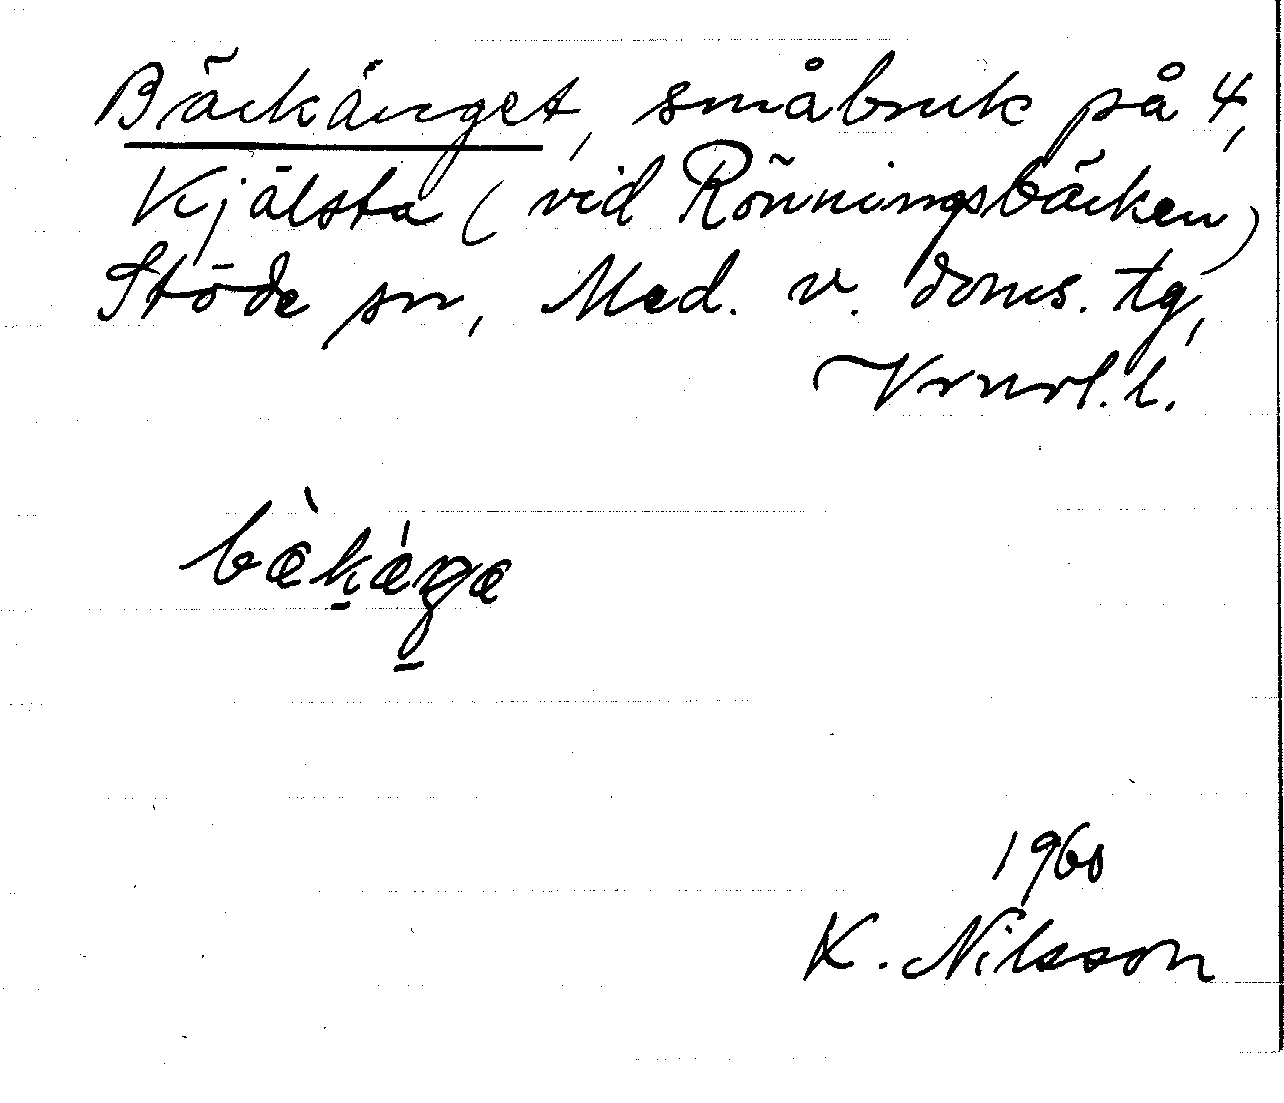 Bäckänget, småbruk på 4,
Kjälsta (vid Rönningsbäcken)
Stöde sn, Med. v. doms. tg,
Vrnrl. l.
bæ̀ḵǽŋ̱æ
1960
K. Nilsson